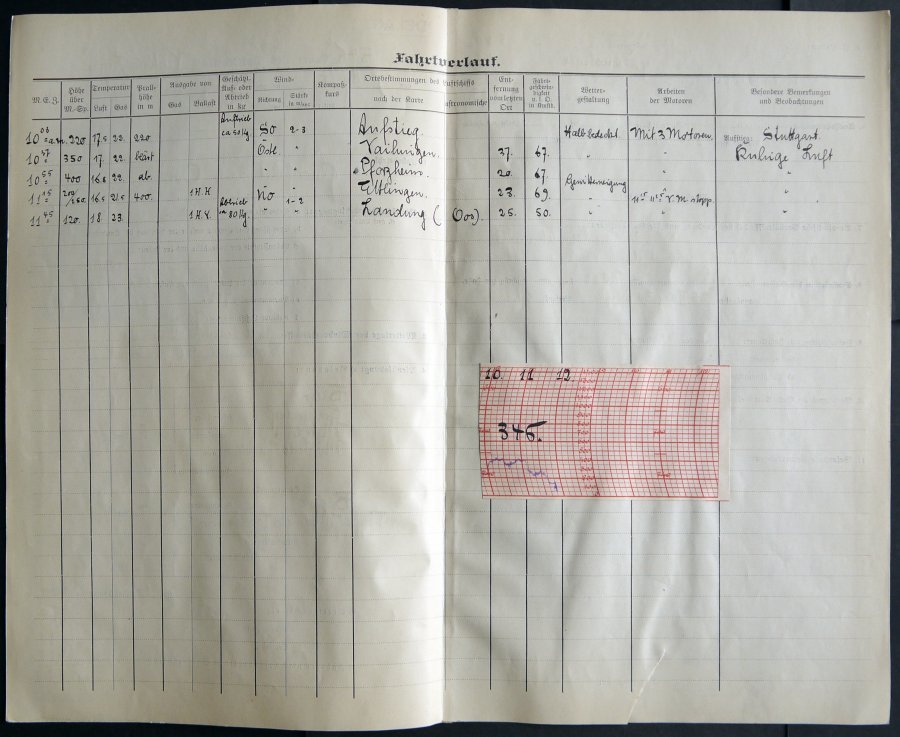 Fahrtverlauf.
M. E. Z. Höhe über M.-Sp. Temperatur Luft Gas Prallhöhe in m Ausgabe von Gas Ballast Geschätzt. Auf- oder Abtrieb in kg Wind- Richtung Stärke in m/sec Kompaßkurs Ortsbestimmungen des Luftschiffs nach der Karte astronomische Entfernung vom letzten Ort Fahrgeschwindigkeit Wettergestaltung Arbeiten der Motoren Besondere Bemerkungen und Beobachtungen
10 06 a.m. 220 17.5 22. 220 Auftrieb ca 50 kg SO 2-3 Aufstieg. Halb bedeckt. Mit 3 Motoren. Aufstieg: Stuttgart
10 27 350 17. 22. Oste. " Vaihingen. 27. 67. " " Ruhige Luft
10 55 400 16.5 22. ab. " " Pforzheim. 20. 67. " "
11 15 200/250 16.5 21.5 400. 1 H.H. NO 1-2 Ettlingen. 23. 69. Gewitterneigung "
11 45 120. 18. 23. 1 H.V. Abtrieb ca 80 kg. " " Landung (Oos). 25. 50. " " "
10. 11 12.
345.